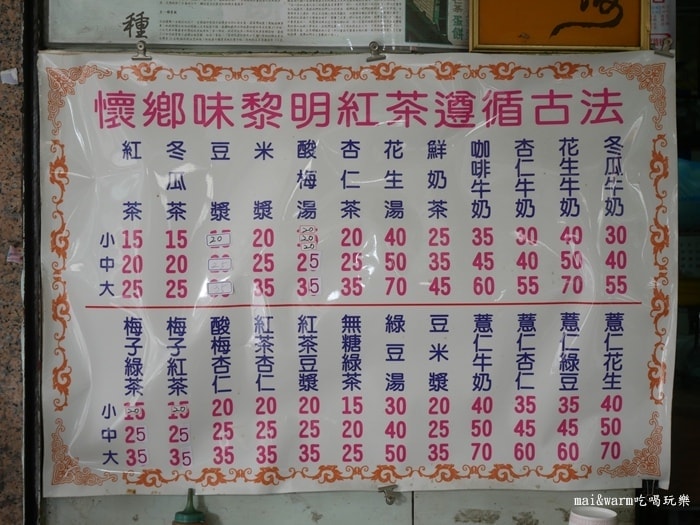 種
懷鄉味黎明紅茶遵循古法
紅茶 冬瓜茶 豆漿 米漿 酸梅湯 杏仁茶 花生湯 鮮奶茶 咖啡牛奶 杏仁牛奶 花生牛奶 冬瓜牛奶
小 15 15 20 20 20 20 40 25 35 30 40 30
中 20 20 25 25 25 50 35 45 40 50 40
大 25 25 35 35 35 70 45 60 55 70 55
梅子綠茶 梅子紅茶 酸梅杏仁 紅茶杏仁 紅茶豆漿 無糖綠茶 綠豆湯 豆米漿 薏仁牛奶 薏仁杏仁 薏仁綠豆 薏仁花生
小 20 20 20 20 20 15 30 20 40 35 35 40
中 25 25 25 25 25 20 40 25 50 45 45 50
大 35 35 35 35 35 25 50 35 70 60 60 70
mai&warm吃喝玩樂